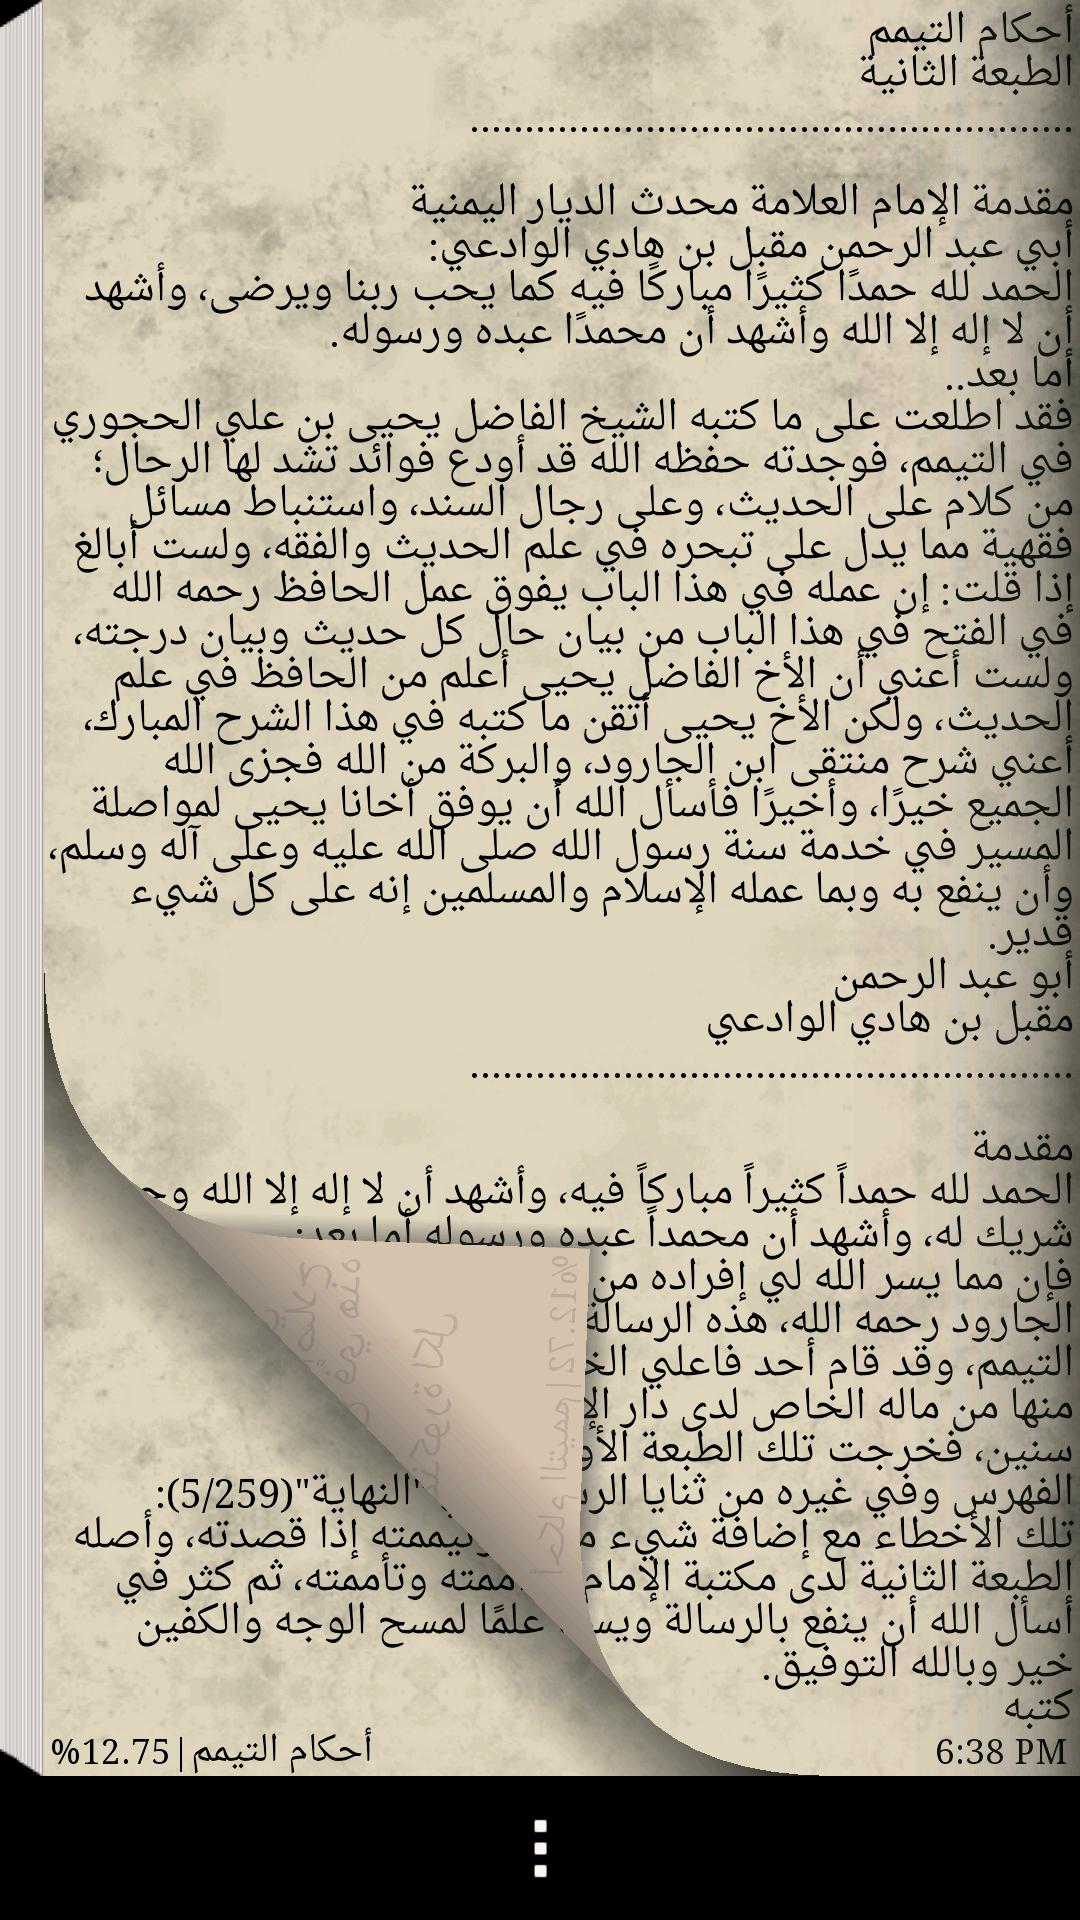 أحكام التيمم
الطبعة الثانية
......................................................
مقدمة الإمام العلامة محدث الديار اليمنية
أبي عبد الرحمن مقبل بن هادي الوادعي:
الحمد لله حمدًا كثيرًا مباركًا فيه كما يحب ربنا ويرضى، وأشهد
أن لا إله إلا الله وأشهد أن محمدًا عبده ورسوله.
أما بعد..
فقد اطلعت على ما كتبه الشيخ الفاضل يحيى بن علي الحجوري
في التيمم، فوجدته حفظه الله قد أودع فوائد تشد لها الرحال؛
من كلام على الحديث، وعلى رجال السند، واستنباط مسائل
فقهية مما يدل على تبحره في علم الحديث والفقه، ولست أبالغ
إذا قلت: إن عمله في هذا الباب يفوق عمل الحافظ رحمه الله
في الفتح في هذا الباب من بيان حال كل حديث وبيان درجته،
ولست أعني أن الأخ الفاضل يحيى أعلم من الحافظ في علم
الحديث، ولكن الأخ يحيى أتقن ما كتبه في هذا الشرح المبارك،
أعني شرح منتقى ابن الجارود، والبركة من الله فجزى الله
الجميع خيرًا، وأخيرًا فأسأل الله أن يوفق أخانا يحيى لمواصلة
المسير في خدمة سنة رسول الله صلى الله عليه وعلى آله وسلم،
وأن ينفع به وبما عمله الإسلام والمسلمين إنه على كل شيء
قدير.
أبو عبد الرحمن
مقبل بن هادي الوادعي
......................................................
مقدمة
الحمد لله حمداً كثيراً مباركاً فيه، وأشهد أن لا إله إلا الله
شريك له، وأشهد أن محمداً عبده ورسوله أما بعد:
فإن مما يسر الله لي إفراده من
الجارود رحمه الله، هذه الرسالة
التيمم، وقد قام أحد فاعلي
منها من ماله الخاص لدى دار
سنين، فخرجت تلك الطبعة
الفهرس وفي غيره من ثنايا "النهاية"(5/259):
تلك الأخطاء مع إضافة شيء وتيممته إذا قصدته، وأصله
الطبعة الثانية لدى مكتبة الإمام وتأممته، ثم كثر في
أسأل الله أن ينفع بالرسالة علمًا لمسح الوجه والكفين
خير وبالله التوفيق.
كتبه
6:38 PM أحكام التيمم|12.75%